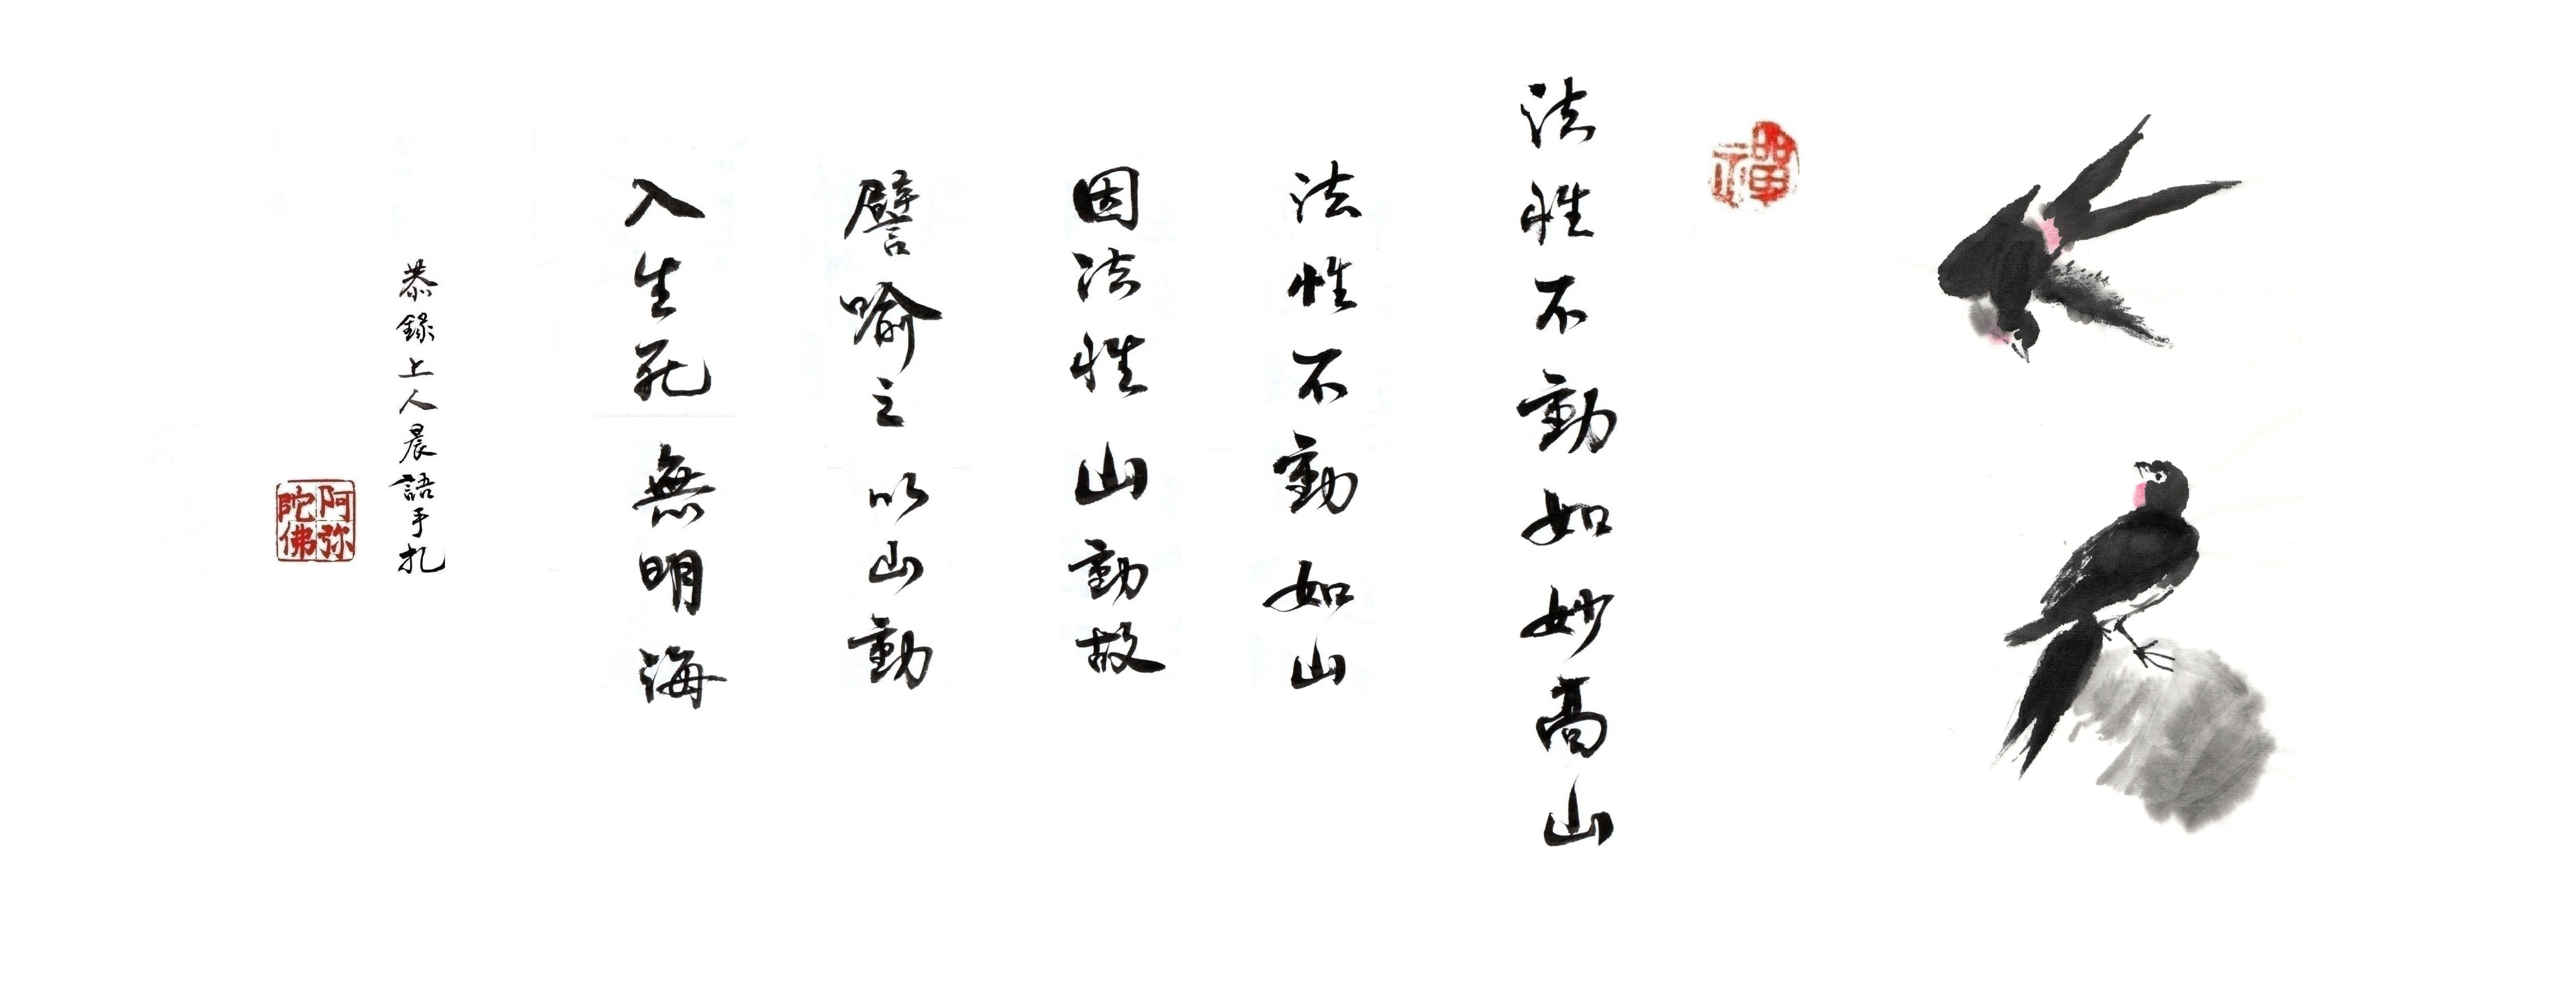 禪
法性不動如妙高山
法性不動如山
因法性山動故
譬喻之以山動
入生死無明海
恭錄上人晨語手扎
阿弥
陀佛